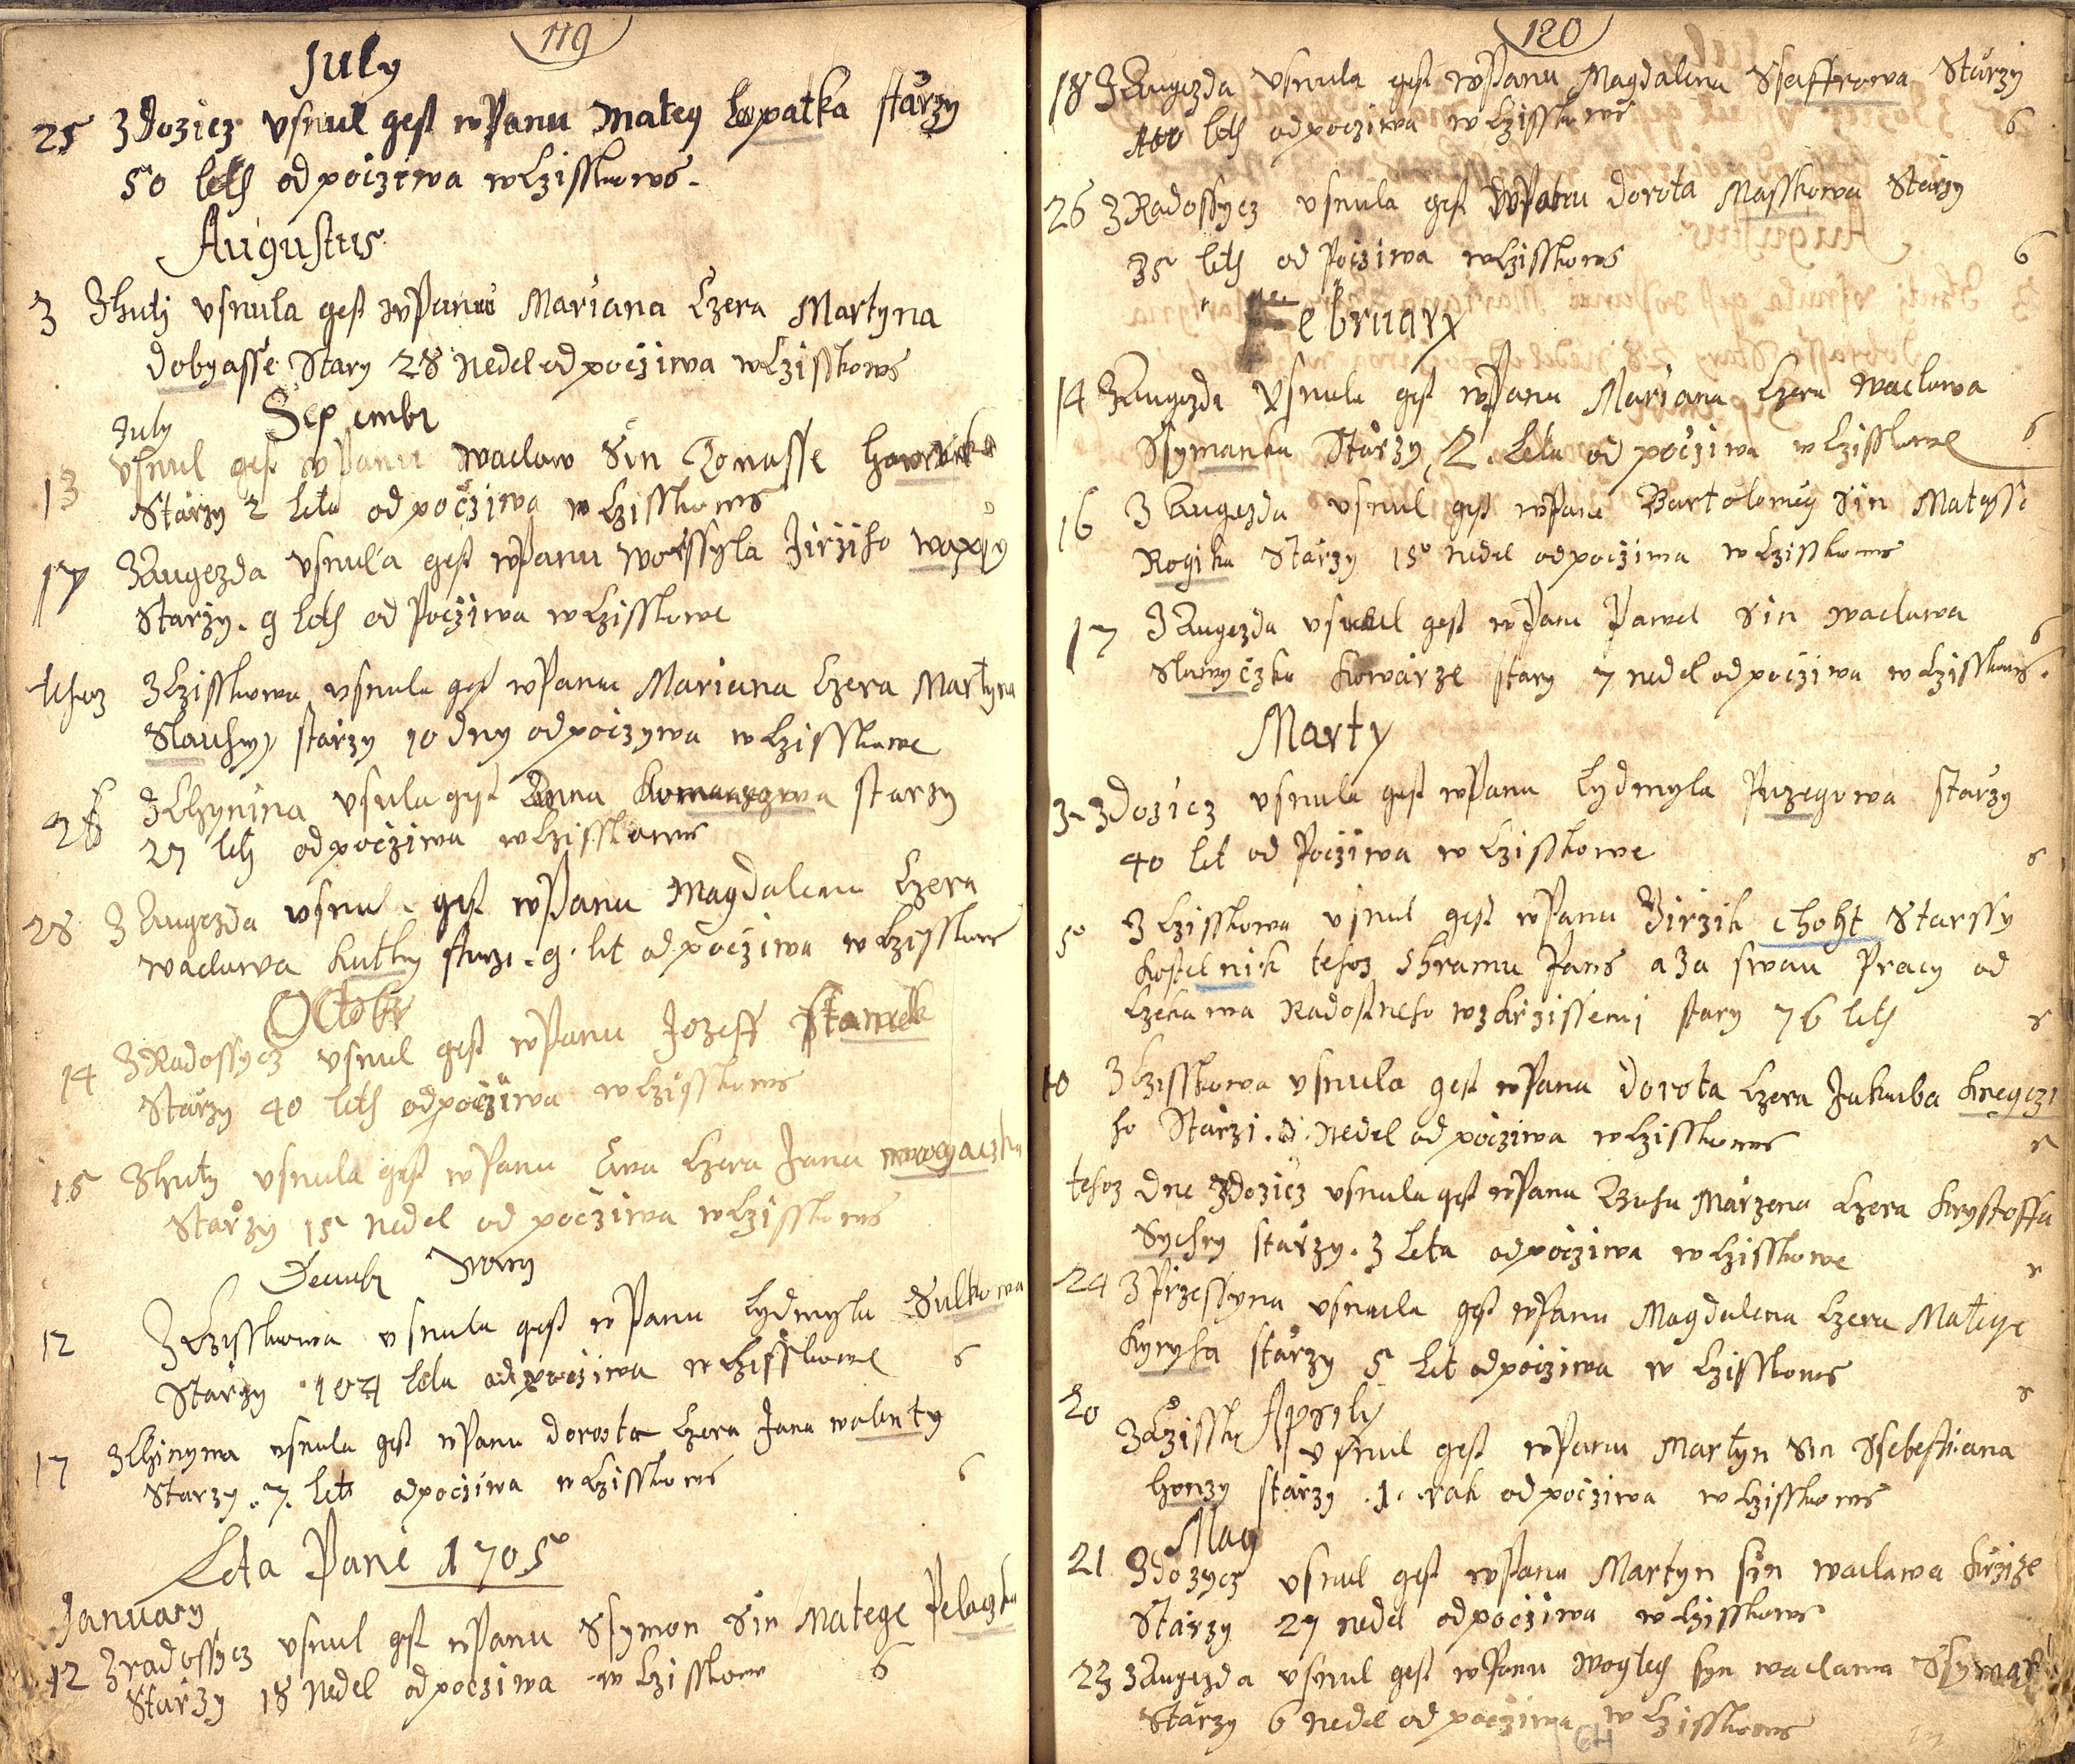 119
July
25 Z Dozicz vsnul gest w Panu Matieg Lopatka starzy
50 leth odpocziwa w Lzisskowe.
Augustus
3 Z huti vsnula gest w Panu Mariana Czera Martyna
dobyasse Stary 28 Nedel odpocziwa w Lzisskowe
July Sep embr
13 vsnul gest w Panu waclaw Sin Tomasse
Starzy 2 leta odpocziwa w Lzisskowe
17 Z Augezda vsnula gest w Panu worssyla Jirziho
Starzy. 9 leth od Pocziwa w Lzisskowe
tehoz Z Lzisskowa vsnula gest w Panu Mariana Czera Martyna
Slauhy starzy 10 dny odpoczywa w Lzisskowe
28 Z Chynina vsnula gest Anna starzy
27 leth odpocziwa w Lzisskowe
28 Z Augezda vsnula gest w Panu Magdalena Czera
waclawa kutky starzi. 9. let odpocziwa w Lzisskowe
Octobr
14 Z Radossycz vsnul gest w Panu Jozeff
Starzy 40 leth odpocziwa w Lzisskowe
15 Z huty vsnula gest w Panu Ewa Czera Jana
Starzy 15 nedel odpocziwa w Lzisskowe
Decembr
12 Z Lzisskowa vsnula gest w Panu Lydmyla Sulkowa
Starzy 104 leta odpocziwa w Lzisskowe 6
17 Z Chinyna vsnula gest w Panu dorota Czera Jana walenty
Starzy. 7. let odpocziwa w Lzisskowe 6
Leta Panie 1705
January
12 Z radossycz vsnul gest w Panu Ssymon Sin Matege Pelaczka
Starzy 18 Nedel odpocziwa w Lzisskowe 6
120
18 Z Augezda vsnula gest w Panu Magdalena Ssaffrowa Starzy
100 leth odpocziwa w Lzisskowe 6
26 Z Radossycz vsnula gest w Panu dorota Masskowa Starzy
35 leth od Pocziwa w Lzisskowe 6
February
14 Z Augezda vsnula gest w Panu Mariana Czera waclawa
Ssymanka Starzy 2. Leta odpocziwa w Lzisskowe 6
16 Z Augezda vsnul gest w Panu Bartolomeg Sin Mategsse
Rogika Starzy 15 nedel odpocziwa w Lzisskowe
17 Z Augezda vsnul gest w Panu Pawel Sin waclawa
Slawyczka kowarze stary 7 nedel odpocziwa w Lzisskowe. 6
Marty
3 Z Dozicz vsnula gest w Panu Lydmyla starzy
40 let od Pocziwa w Lzisskowe 6
5 Z Lzisskowa vsnul gest w Panu Jirzik Choht Starssy
kostelnik tehoz Chramu Panie a za swau Pracy od
Czekawa Radostneho wzkrzisseni stary 76 leth
10 Z Lzisskowa vsnula gest w Panu dorota Czera Jakuba kregczi
ho Starzi. nedel odpocziwa w Lzisskowe
tehoz dne Z dozicz vsnula gest w Panu Marzena Czera krystoffa
Sychry starzy. 3 leta odpocziwa w Lzisskowe
24 Z Przessyna vsnula gest w Panu Magdalena Czera Matege
kyryha starzy 5 let odpocziwa w Lzisskowe
Aprily
20 Z Lzissk vsnul gest w Panu Martyn Sin Ssebestiana
honzy starzy .1. rok odpocziwa w Lzisskowe
May
21 Z dozycz vsnul gest w Panu Martyn sin waclawa krzize
Starzy 27 nedel odpocziwa w Lzisskowe
23 Z Augezda vsnul gest w Panu Wogtech syn waclawa
Starzy 6 nedel odpocziwa w Lzisskowe
64